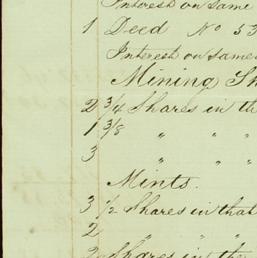 Interest on same
1 Deed No 53
Interest on same
Mining Sh
2 3/4 Shares in th
1 3/8 " " "
3 " " "
Mints.
3 1/2 Shares in that
2 " " "
2 Shares in the